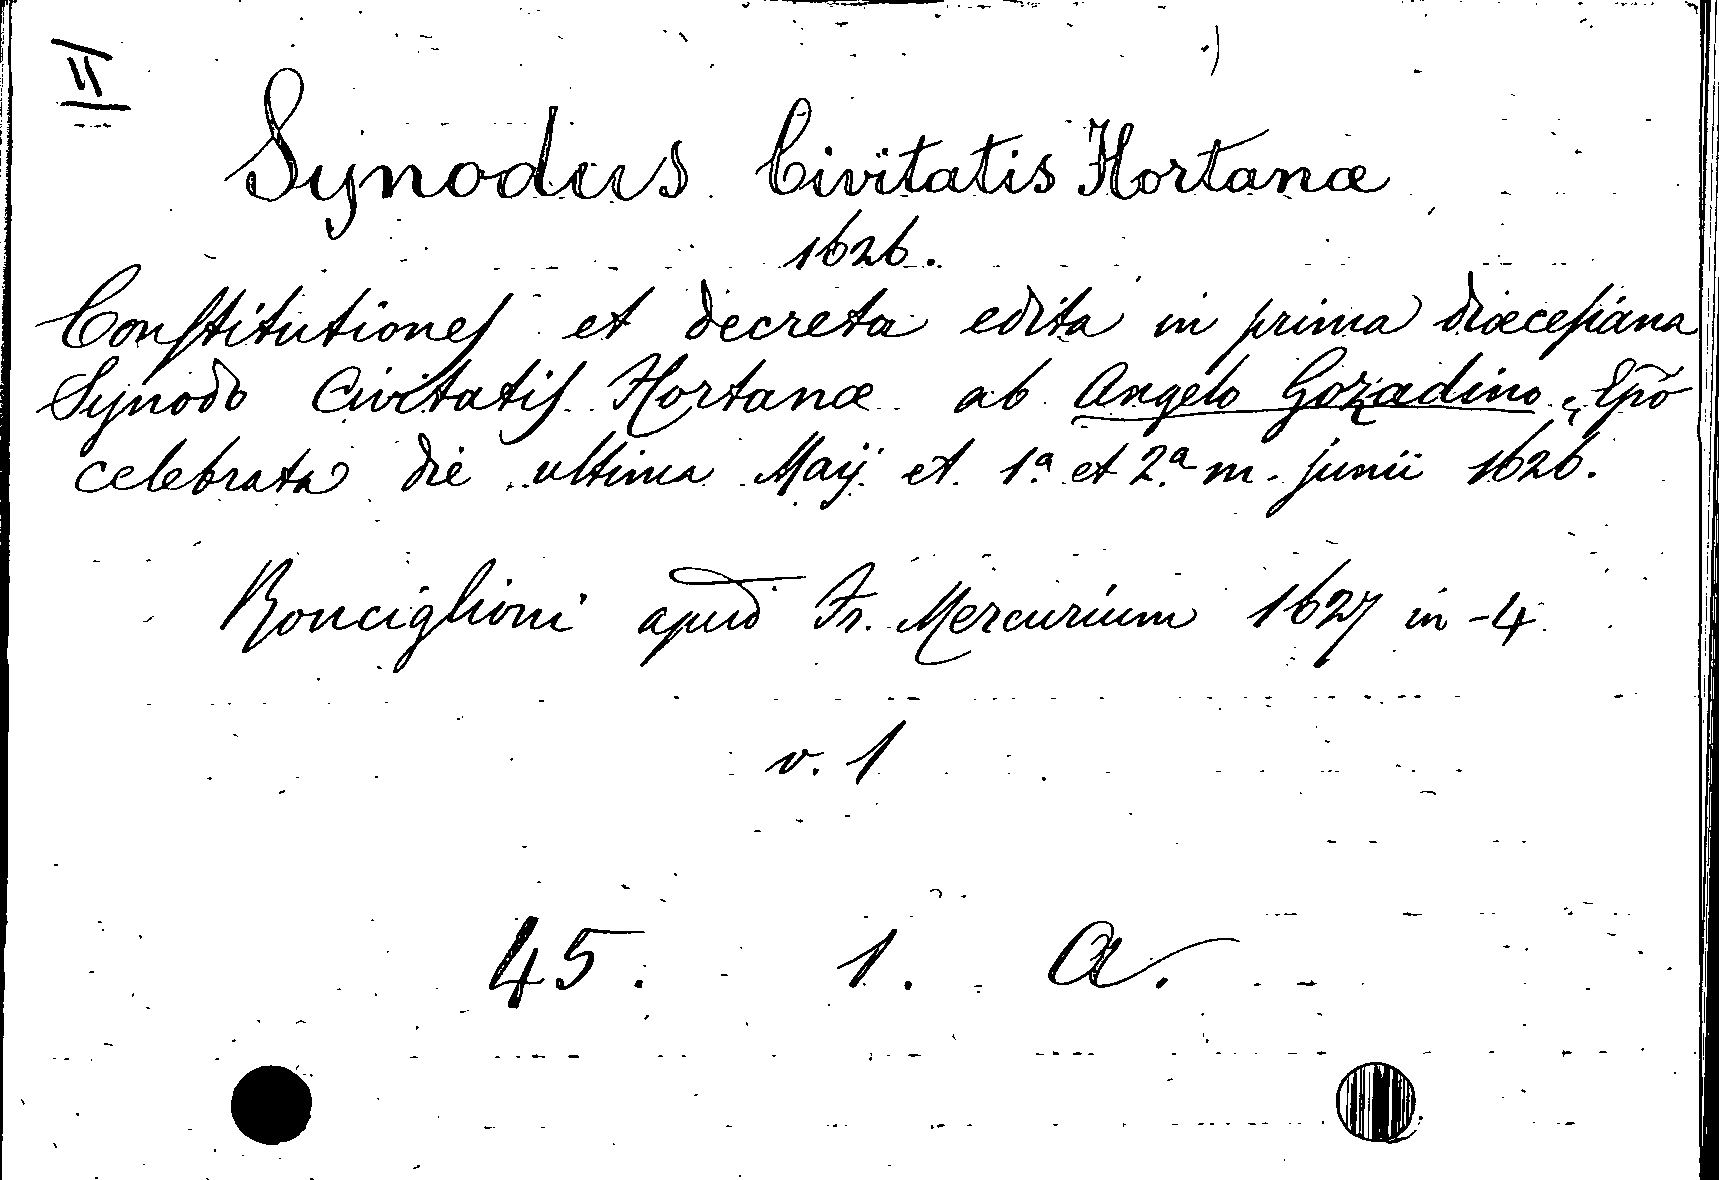 II
Synodus Civitatis Hortanæ
1626.
Conſtitutioneſ et decreta edita in prima diœceſiana
Synodo Civitatiſ Hortanæ ab Angelo Gozadino, Ep̃o
celebrata die ultima Maij et 1ª et 2ª m. junii 1626.
Ronciglioni apud Fr. Mercurium 1627 in-4
v. 1
45. 1. A.